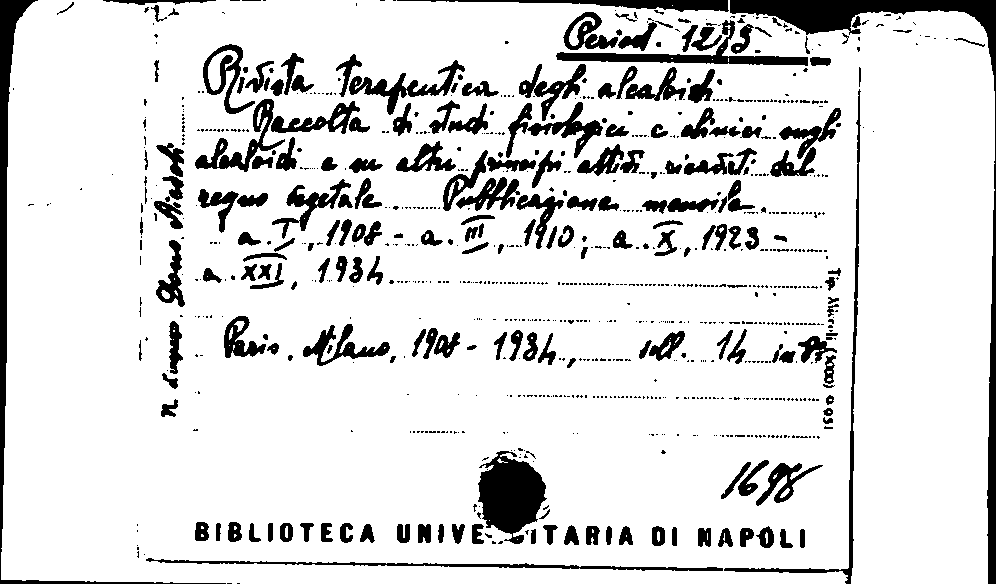 Period. 1273.
Rivista terapeutica degli alcaloidi.
Raccolta di studi fisiologici e clinici sugli
alcaloidi e su altri principi attivi, ricavati dal
regno vegetale. Pubblicazione mensile.
a. I, 1908 - a. III, 1910; a. X, 1923 -
a. XXI, 1934.
Paris, Milano, 1908 - 1934, voll. 14 in 8º
N. d'ingresso Dono
Tip. (XXI)
1698
BIBLIOTECA UNIVERSITARIA DI NAPOLI